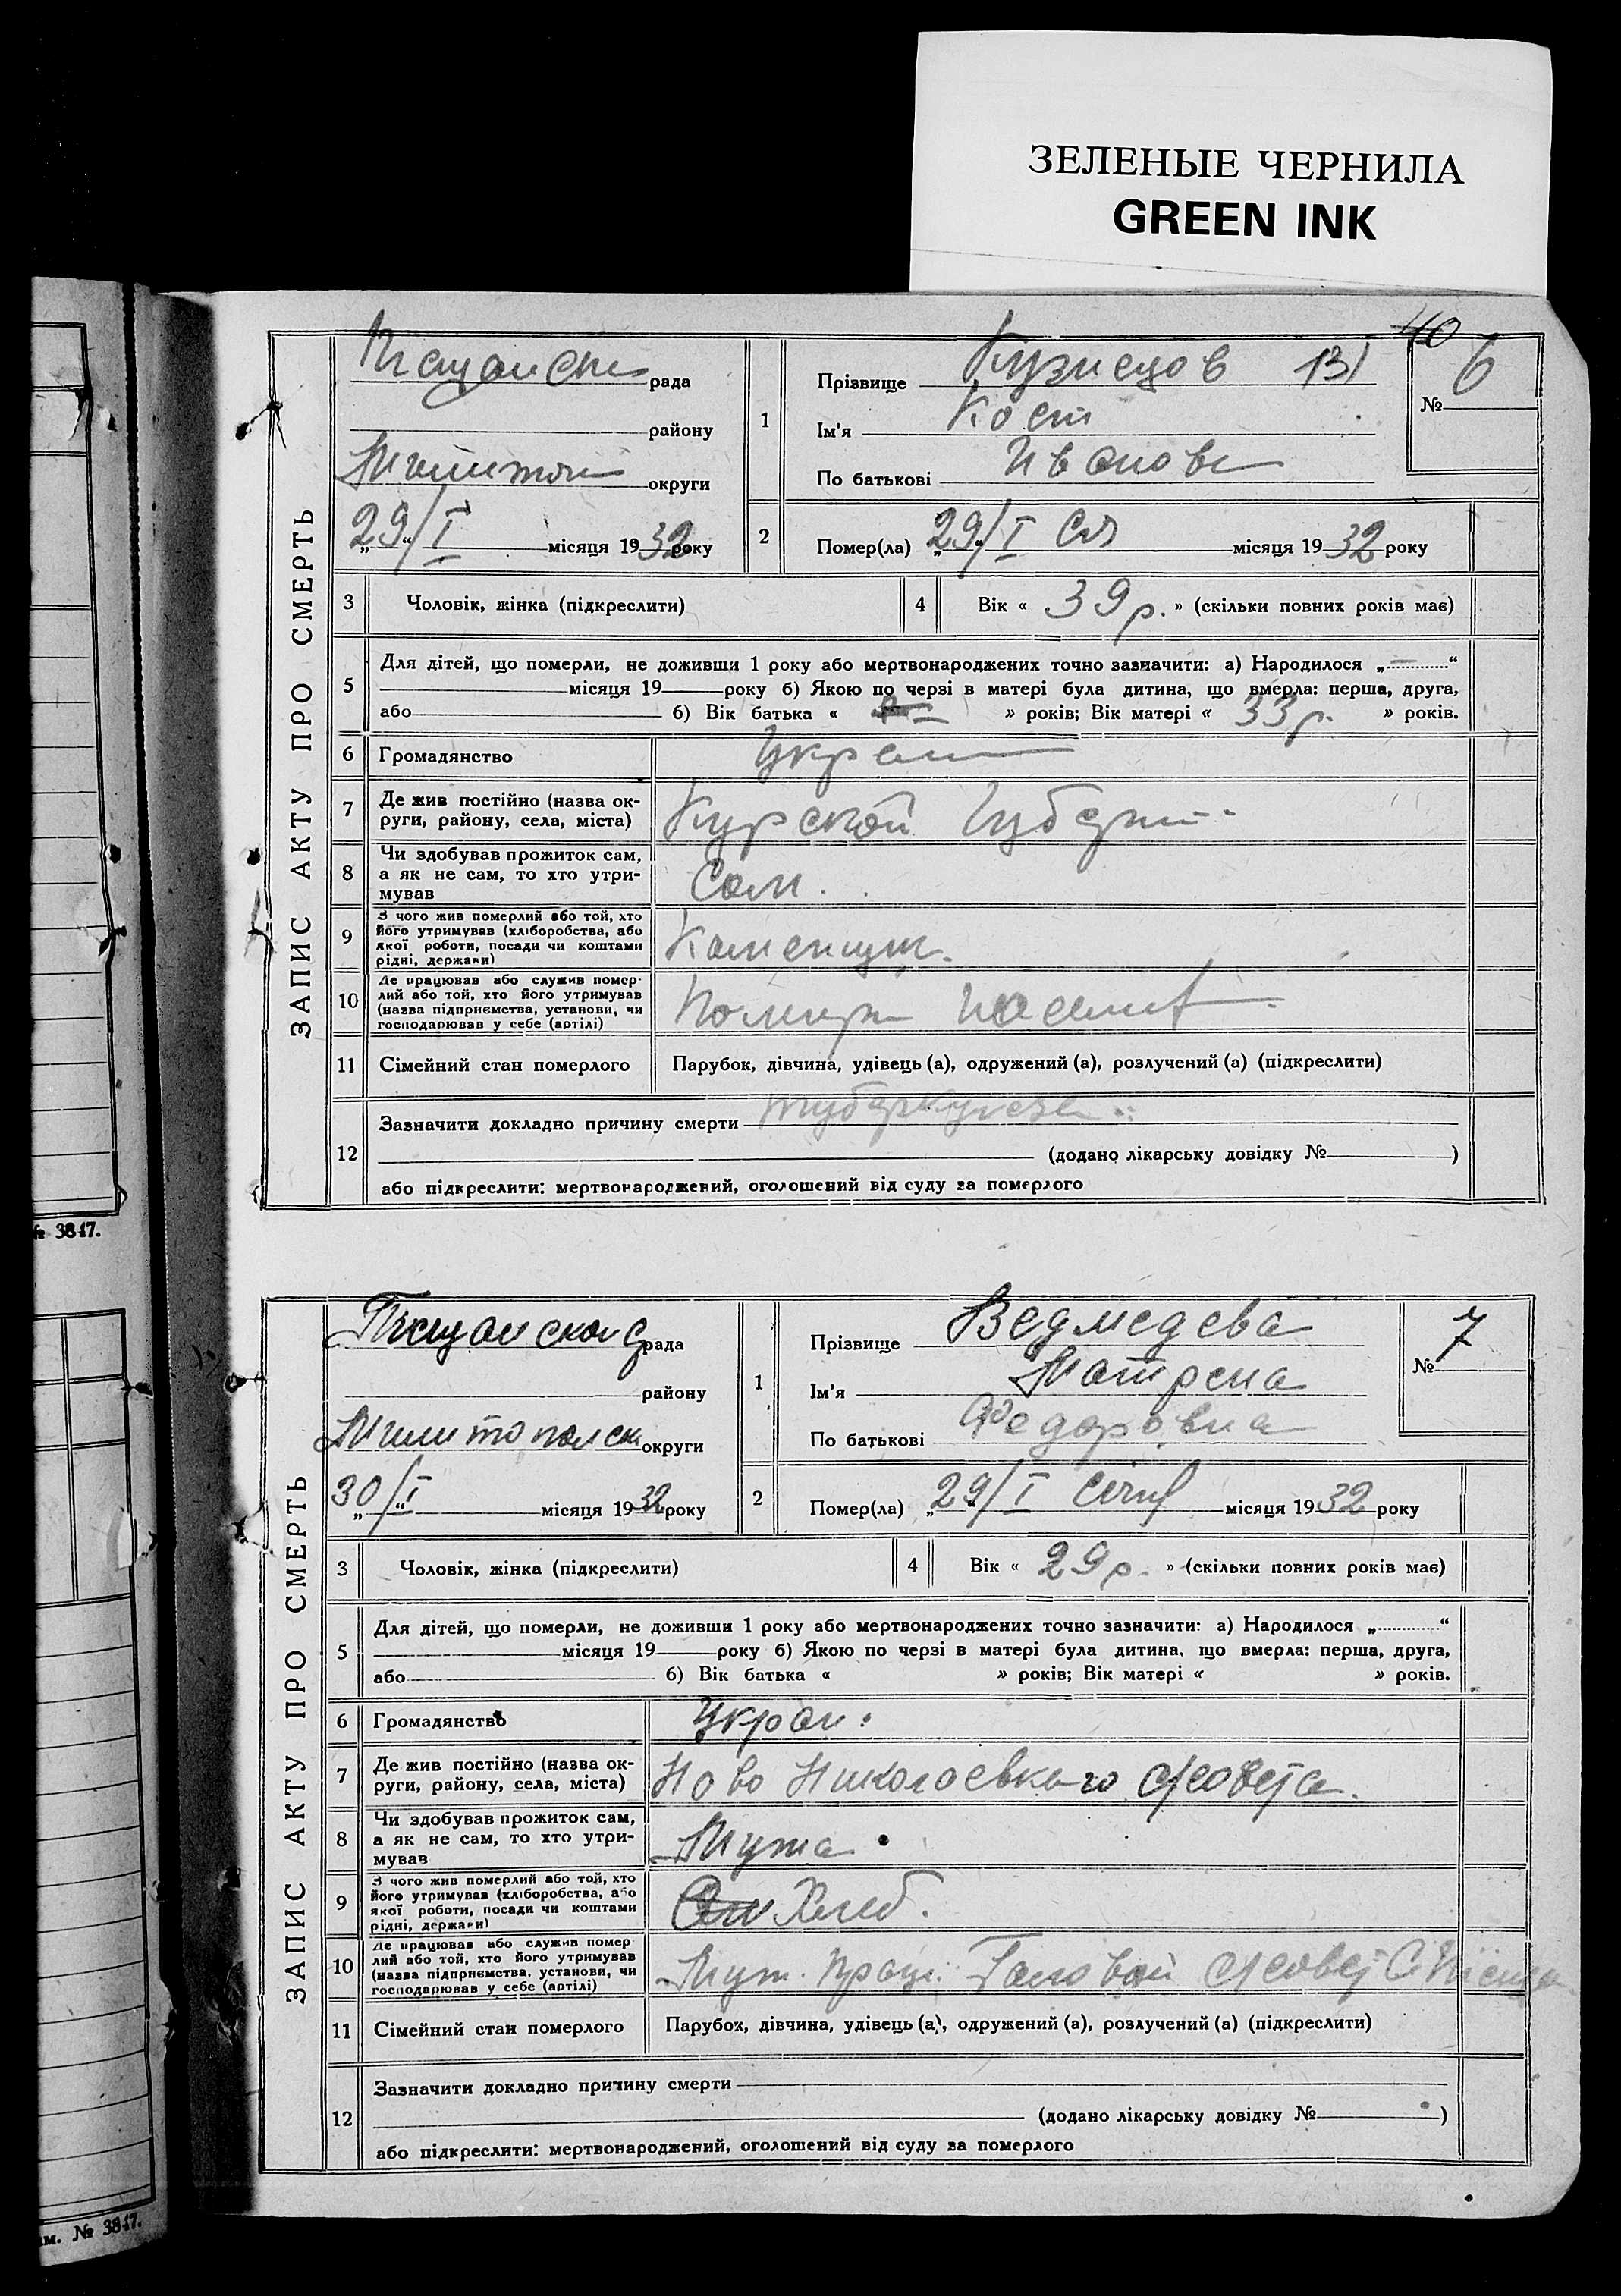 ЗЕЛЕНЫЕ ЧЕРНИЛА
GREEN INK
40
ЗАПИС АКТУ ПРО СМЕРТЬ
рада
району
округи
„29“/I місяця 1932 року
1
Прізвище Кузнецов 131
Ім'я Кост
По батькові Иванов
№ 6
2
Помер(ла) „29“/I місяця 1932 року
3
Чоловік, жінка (підкреслити)
4
Вік « 39 р. » (скільки повних років має)
5
Для дітей, що померли, не доживши 1 року або мертвонароджених точно зазначити: а) Народилося „ — “
місяця 19 року б) Якою по черзі в матері була дитина, що вмерла: перша, друга,
або б) Вік батька « » років; Вік матері « 33 р. » років.
6
Громадянство
7
Де жив постійно (назва ок-
руги, району, села, міста)
Курской Губерни
8
Чи здобував прожиток сам,
а як не сам, то хто утри-
мував
Сам.
9
З чого жив померлий або той, хто
його утримував (хліборобства, або
якої роботи, посади чи коштами
рідні, держави)
Каменщик.
10
Де працював або служив помер-
лий або той, хто його утримував
(назва підприємства, установи, чи
господарював у себе (артілі)
11
Сімейний стан померлого
Парубок, дівчина, удівець (а), одружений (а), розлучений (а) (підкреслити)
12
Зазначити докладно причину смерти туберкулеза
(додано лікарську довідку № )
або підкреслити: мертвонароджений, оголошений від суду за померлого
№ 3817.
ЗАПИС АКТУ ПРО СМЕРТЬ
рада
району
округи
„30“/I місяця 1932 року
1
Прізвище Ведмедева
Ім'я Матрена
По батькові Федоровна
№ 7
2
Помер(ла) „29/I місяця 1932 року
3
Чоловік, жінка (підкреслити)
4
Вік « 29 р. » (скільки повних років має)
5
Для дітей, що померли, не доживши 1 року або мертвонароджених точно зазначити: а) Народилося „ “
місяця 19 року б) Якою по черзі в матері була дитина, що вмерла: перша, друга,
або б) Вік батька « » років; Вік матері « » років.
6
Громадянство
Украи.
7
Де жив постійно (назва ок-
руги, району, села, міста)
Ново Николаевкаго с/совета.
8
Чи здобував прожиток сам,
а як не сам, то хто утри-
мував
Мужа
9
З чого жив померлий або той, хто
його утримував (хліборобства, або
якої роботи, посади чи коштами
рідні, держави)
Хлеб.
10
Де працював або служив помер-
лий або той, хто його утримував
(назва підприємства, установи, чи
господарював у себе (артілі)
Муж. Прац. Головой
11
Сімейний стан померлого
Парубок, дівчина, удівець (а), одружений (а), розлучений (а) (підкреслити)
12
Зазначити докладно причину смерти
(додано лікарську довідку № )
або підкреслити: мертвонароджений, оголошений від суду за померлого
ам. № 3817.